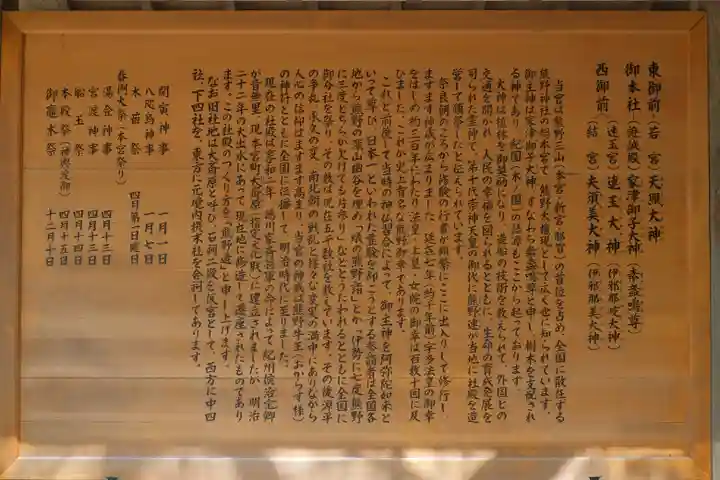 東御前・若宮 天照大神
御本社（證誠殿）家津御子大神（素盞嗚尊）
（速玉宮）速玉大神（伊邪那岐大神）
西御前（結宮）夫須美大神（伊邪那美大神）
当宮は熊野三山（本宮・新宮・那智）の首位を占め、全国に散在する
熊野神社の総本宮で、熊野大権現として広く世に知られています。
御主神は家津御子大神、すなわち素盞嗚尊と申し、樹木を支配され
る神であり、紀国（木ノ国）の語源もここから起っております
大神は植林を御奨励になり、造船の技術を教えられて、外国との
交通を開かれ、人民の幸福を図られるとともに、生命の育成発展を
司られた霊神で、第十代崇神天皇の御代に熊野連が当地に社殿を造
営して顕祭したと伝えられています。
奈良朝のころから修験の行者が頻繁にここに出入りして修行し、
ますます神威が広まりました 延喜七年（約千年前）宇多法皇の御幸
をはじめ約三百年にわたり法皇・上皇・女院の御幸は百数十回に及
びました。これが史上有名な熊野御幸であります。
これと前後して当時の神仏習合によって、御主神を阿弥陀如来と
いって尊び、日本一といわれた霊験を仰ごうとする参詣者は全国各
地から熊野の深山幽谷を埋め「蟻の熊野詣」とか「伊勢に七度熊野
に三度どちらか欠けても片参り」などとうたわれるとともに全国に
御分社を祭り、その数は現在五千数社を数えています。その後源平
の争乱、承久の変、南北朝の戦乱と様々な変異の渦中にありながら
人心の信仰はますます高まり、当宮の神威は熊野牛王（おからす様）
の神符とともに全国に浸播して、明治時代に至りました。
現在の社殿は享和二年、徳川家斉将軍の命によって紀州候治宝卿
が音無里、現本宮町大斎原（指定文化財）に建立されましたが、明治
二十二年の大出水にあって、現在地に修造して遷座されたものであり
ます。この社殿のつくり方を「熊野造」と申し上げます。
なお旧社地は大斎原と呼び、石祠二殿を仮宮として、西方に中四
社、下四社を、東方に元境内摂末社を合祀してあります。
開寅神事 一月一日
八咫烏神事 一月七日
木苗祭 四月第一日曜日
春例大祭（本宮祭り）
湯登神事 四月十三日
宮渡神事 四月十三日
船玉祭 四月十四日
本殿祭（神輿渡御） 四月十五日
御竈木祭 十二月十日